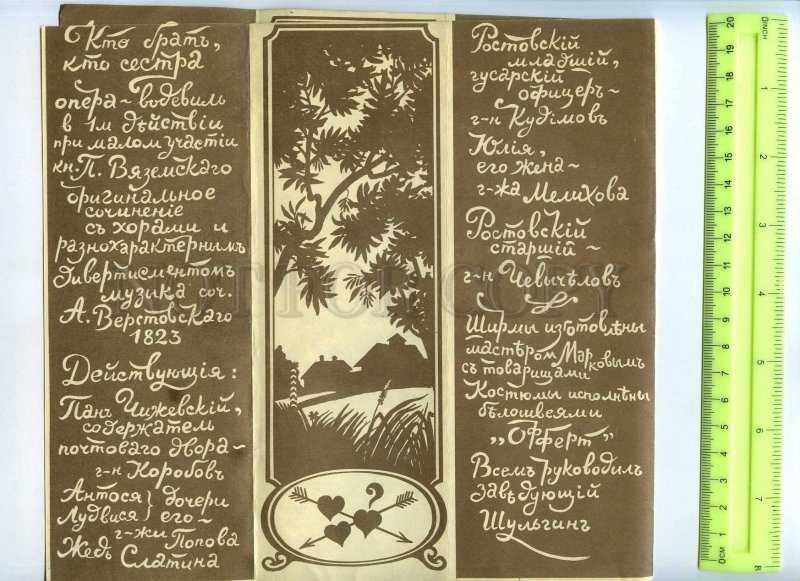 Кто братъ,
кто сестра
опера~водевиль
в 1м дѣйствiи
при малом участiи
кн. П. Вяземскаго
оригинальное
сочиненiе
съ хорами и
разнохарактернымъ
дивертисментомъ
музика соч.
А. Верстовскаго
1823
Дѣйствующiя:
Панъ Чижевскiй,
содержатель
почтоваго двора~
г-н Коробовъ
Антося } дочери
Лудвися } его~
г-жи Попова
Жедъ Слатина
Ростовскiй
младшiй,
гусарскiй
офицеръ~
г-н Кудiмовъ
Юлiя,
его жена~
г-жа Мелихова
Ростовскiй
старшiй~
г-нъ Чевычѣловъ
Ширмы изготовлѣны
мастѣром Марковымъ
съ товарищами
Костюмы исполнѣны
бѣлошвеями
„Офферт"
Всемъ руководилъ
завѣдующiй
Шульгинъ
?
0 INCH 1 2 3 4 5 6 7 8
20 19 18 17 16 15 14 13 12 11 10 9 8 7 6 5 4 3 2 1 0CM